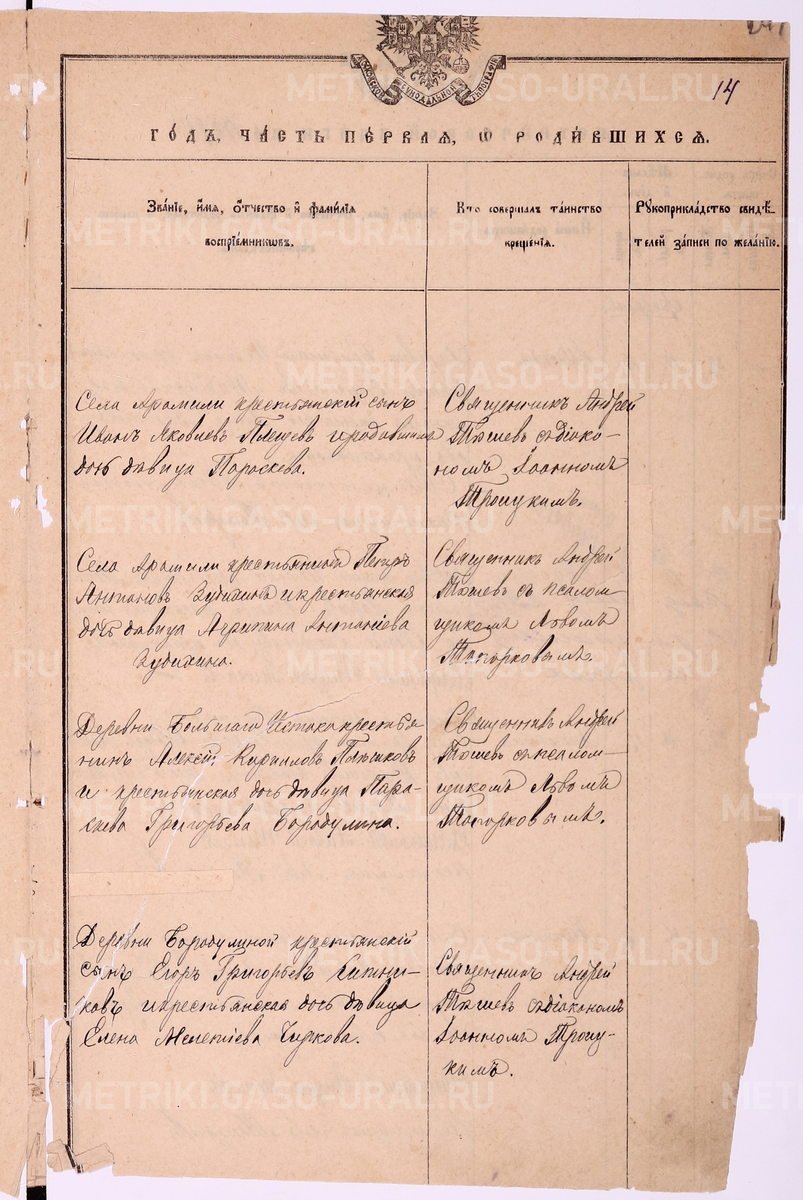 14
МОСКОВСКОЙ СѴНОДАЛЬНОЙ ТѴПОГРАФІИ
ГО́ДЪ, ЧА́СТЬ ПЕ́РВАЯ, Ѡ РОДИ́ВШИХСЯ.
Зва́нїе, и́мя, ѻ҆́тчество и҆ фами́лїя
воспрїе́мникѡвъ.
Кто соверша́лъ та́инство
креще́нїя.
Рꙋкоприкла́дство свидѣ́-
телей за́писи по жела́нїю.
Села Арамили крестьянскій сынъ
Иванъ Яковлевъ Плещевъ и
дочь дѣвица Параскева.
Священникъ Андрей
Тяшевъ съ діако-
номъ Іоанномъ
Троицкимъ.
Села Арамили крестьянинъ Петръ
Антіповъ Зубихинъ и крестьянская
дочь дѣвица Агрипина Антипіева
Зубихина.
Священникъ Андрей
Тяшевъ съ псалом-
щикомъ Львомъ
Топорковымъ.
Деревни Большаго Истока крестья-
нинъ Алексій Кирилловъ Плѣшковъ
и крестьянская дочь дѣвица Пара-
скева Григорьева Бородулина.
Священникъ Андрей
Тяшевъ съ псалом-
щикомъ Львомъ
Топорковымъ.
Деревни Бородулиной крестьянскій
сынъ Егоръ Григорьевъ
и крестьянская дочь дѣвица
Елена Мелетіева Чиркова.
Священникъ Андрей
Тяшевъ съ діакономъ
Іоанномъ Троиц-
кимъ.
METRIKI.GASO-URAL.RU